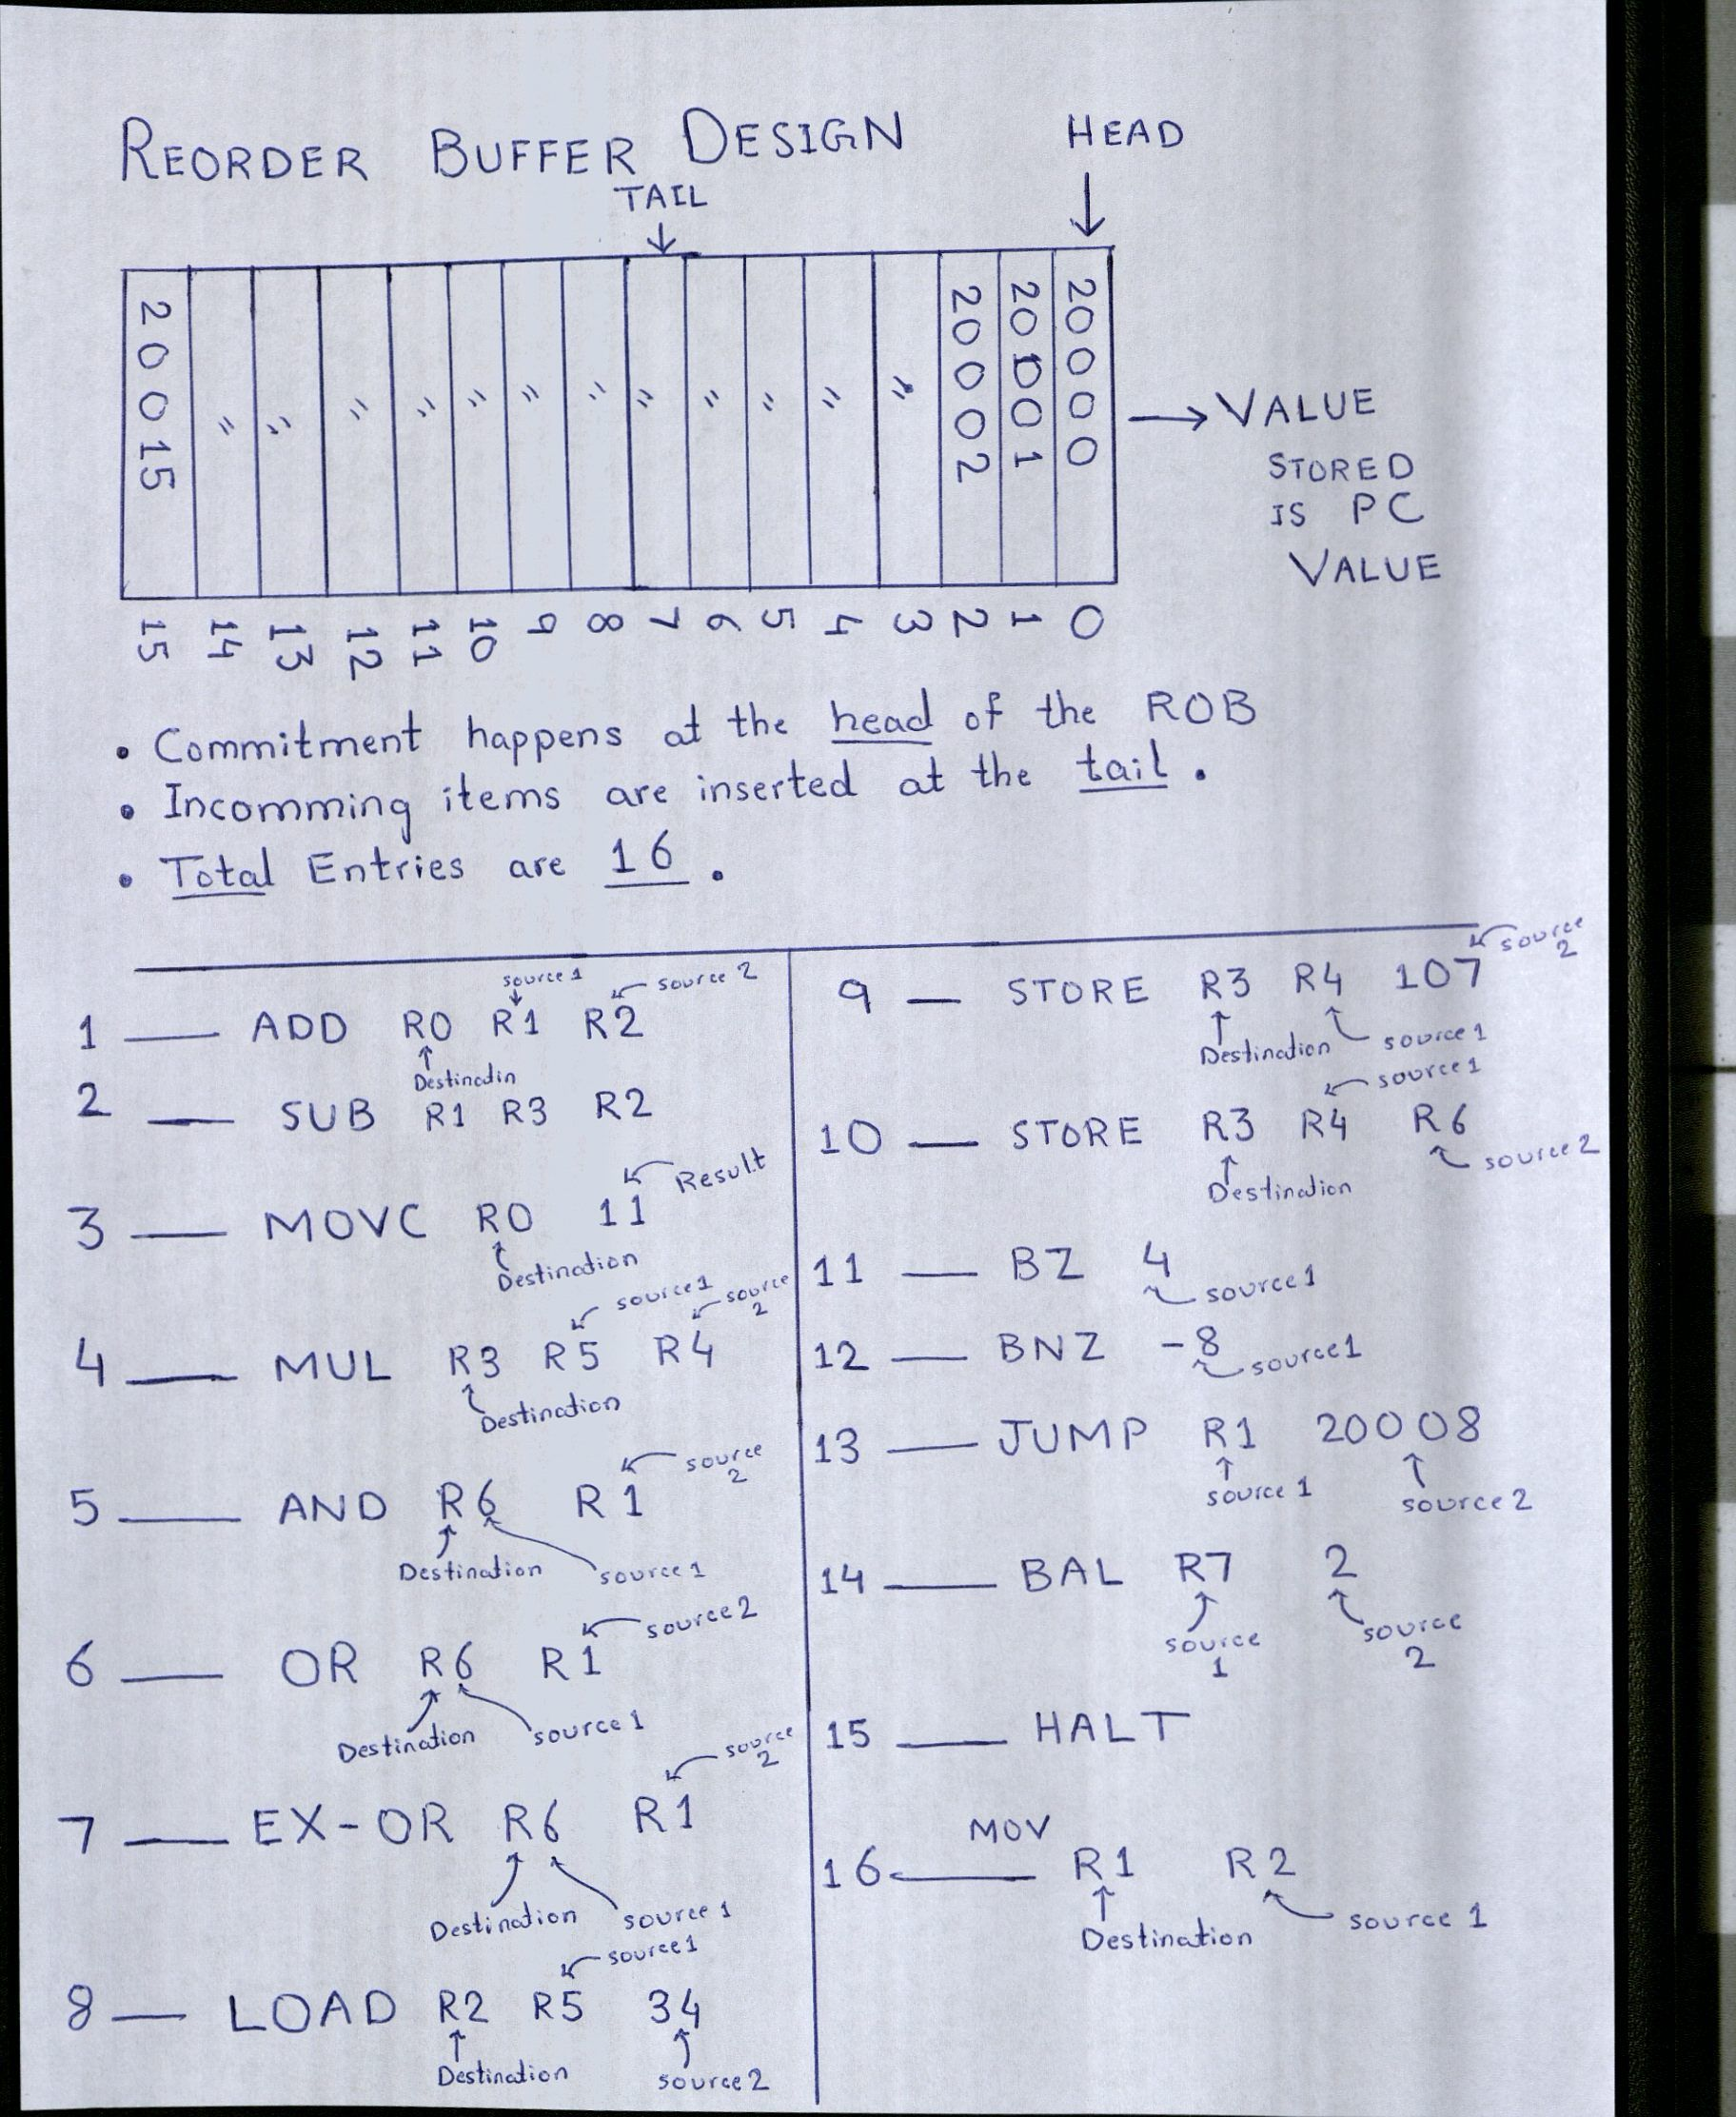 REORDER BUFFER DESIGN
HEAD
TAIL
20015 " " " " " " " " " " " " 20002 20001 20000
VALUE
STORED
IS PC
VALUE
15 14 13 12 11 10 9 8 7 6 5 4 3 2 1 0
• Commitment happens at the head of the ROB
• Incomming items are inserted at the tail.
• Total Entries are 16.
source 1 source 2
1 — ADD R0 R1 R2
Destinatin
2 — SUB R1 R3 R2
Result
3 — MOVC R0 11
Destination
source1 source 2
4 — MUL R3 R5 R4
Destination
source 2
5 — AND R6 R1
Destination source 1
source2
6 — OR R6 R1
Destination source 1
source 2
7 — EX-OR R6 R1
Destination source 1
source1
8 — LOAD R2 R5 34
Destination source2
source 2
9 — STORE R3 R4 107
Destination source 1
source 1
10 — STORE R3 R4 R6
Destination source 2
11 — BZ 4
source1
12 — BNZ -8
source1
13 — JUMP R1 20008
source 1 source 2
14 — BAL R7 2
source 1 source 2
15 — HALT
MOV
16 — R1 R2
Destination source 1